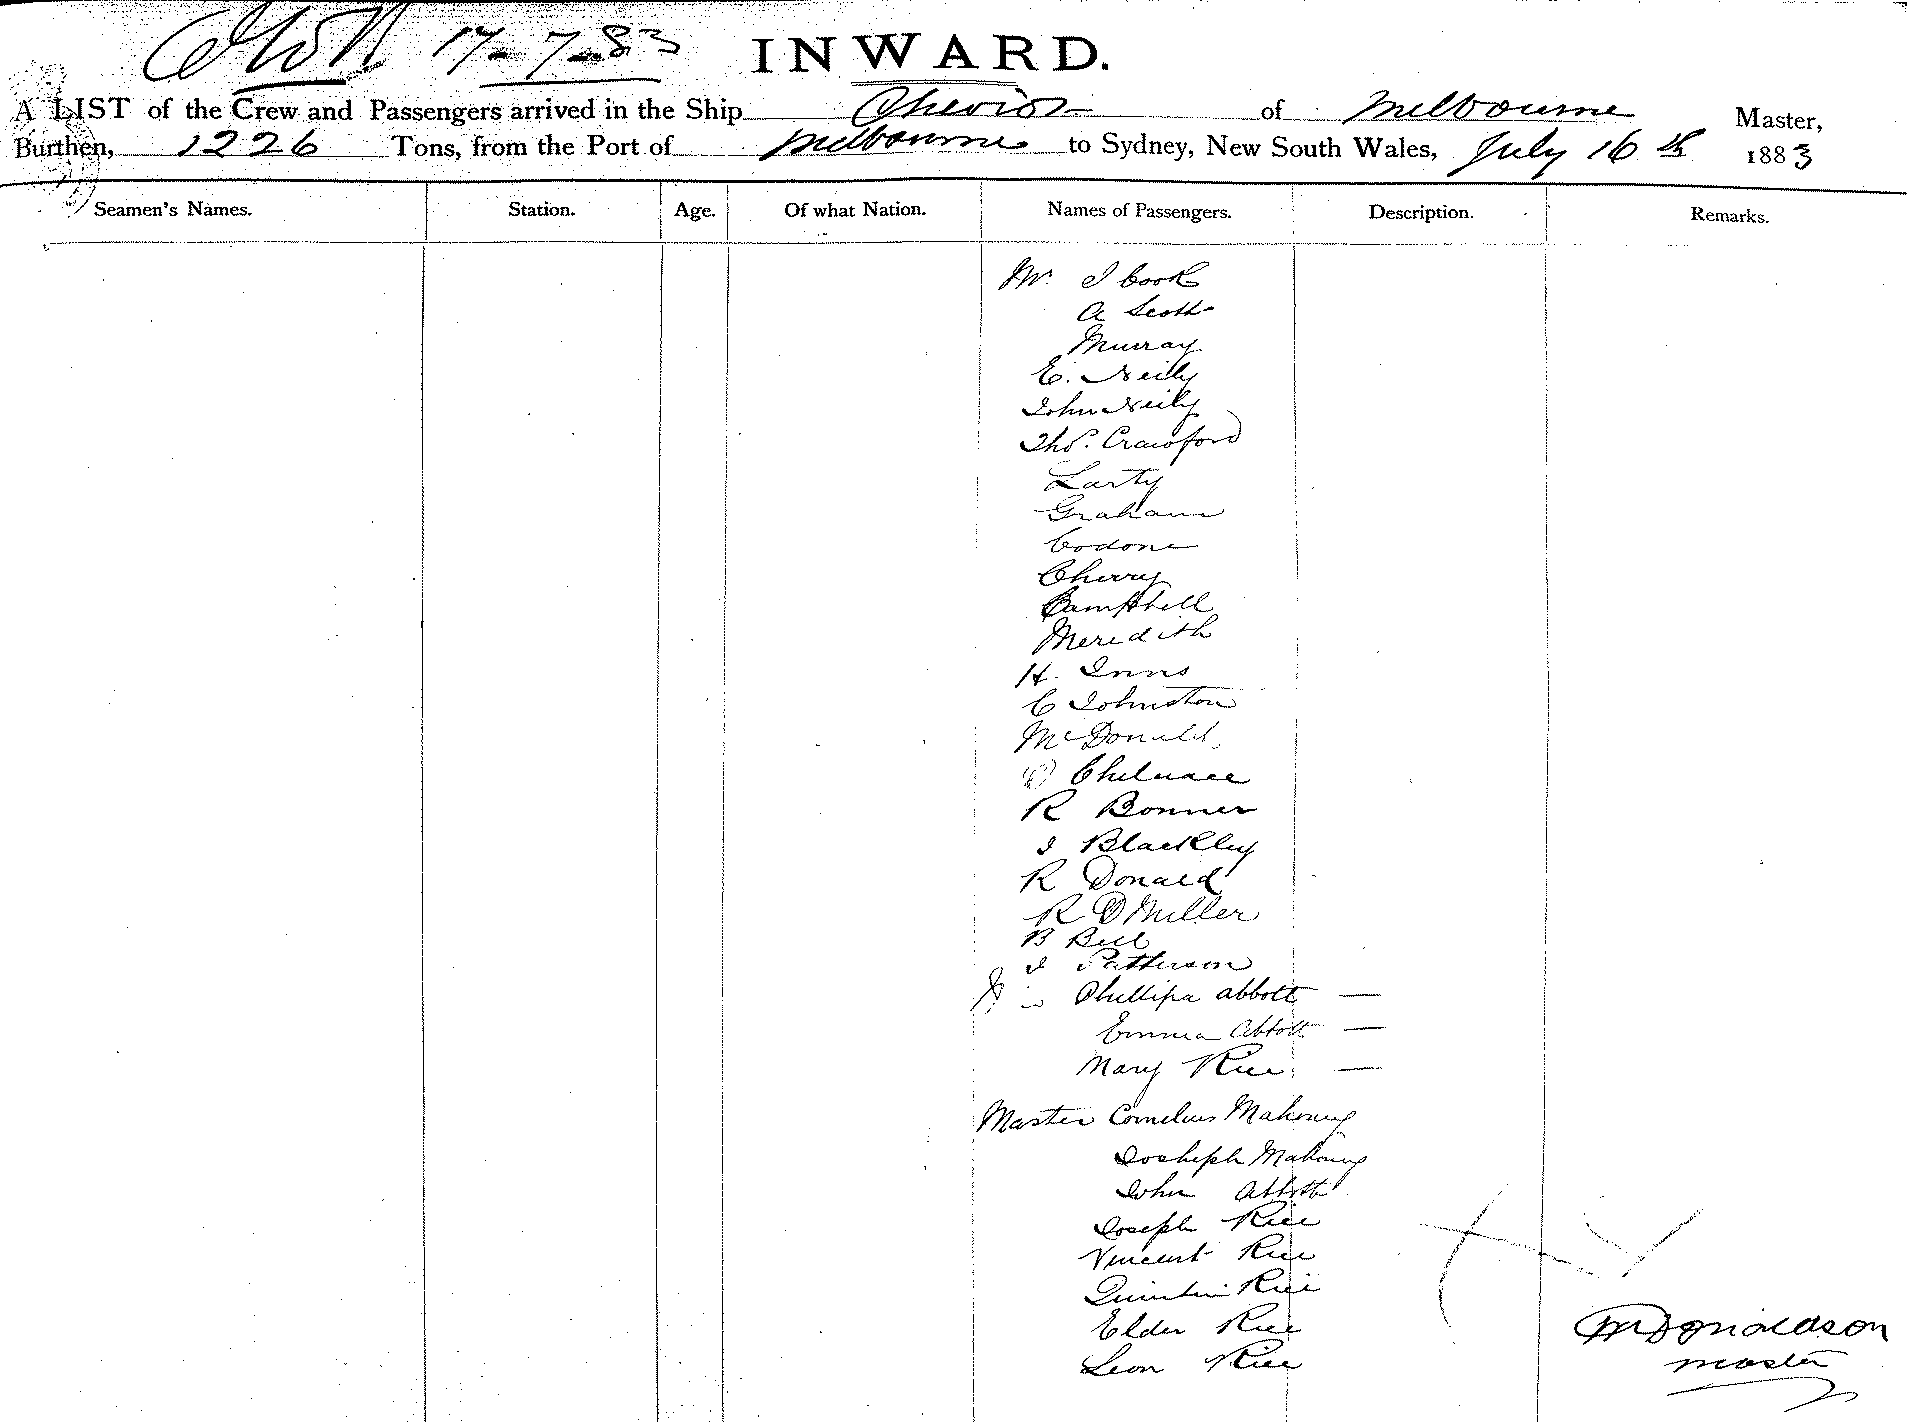 17-7-83 INWARD.
A LIST of the Crew and Passengers arrived in the Ship Cheviot of Melbourne Master,
Burthen, 1226 Tons, from the Port of Melbourne to Sydney, New South Wales, July 16th 1883
Seamen's Names. Station. Age. Of what Nation. Names of Passengers. Description. Remarks.
Mr. J Cook
A Scott
Murray
E. Neily
John Neily
Thos. Crawford
Larty
Graham
Codone
Cherry
Campbell
Meredith
H. Inns
C Johnston
McDonald
R Bonner
J Blackley
R Donald
R D Miller
B Bell
J Patterson
Phillipa Abbott —
Emma Abbott —
Mary Rice —
Master Cornelius Mahoney
Josheph Mahoney
John Abbott
Joseph Rice
Vincent Rice
Quintin Rice
Elder Rice
Leon Rice
Donaldson
master